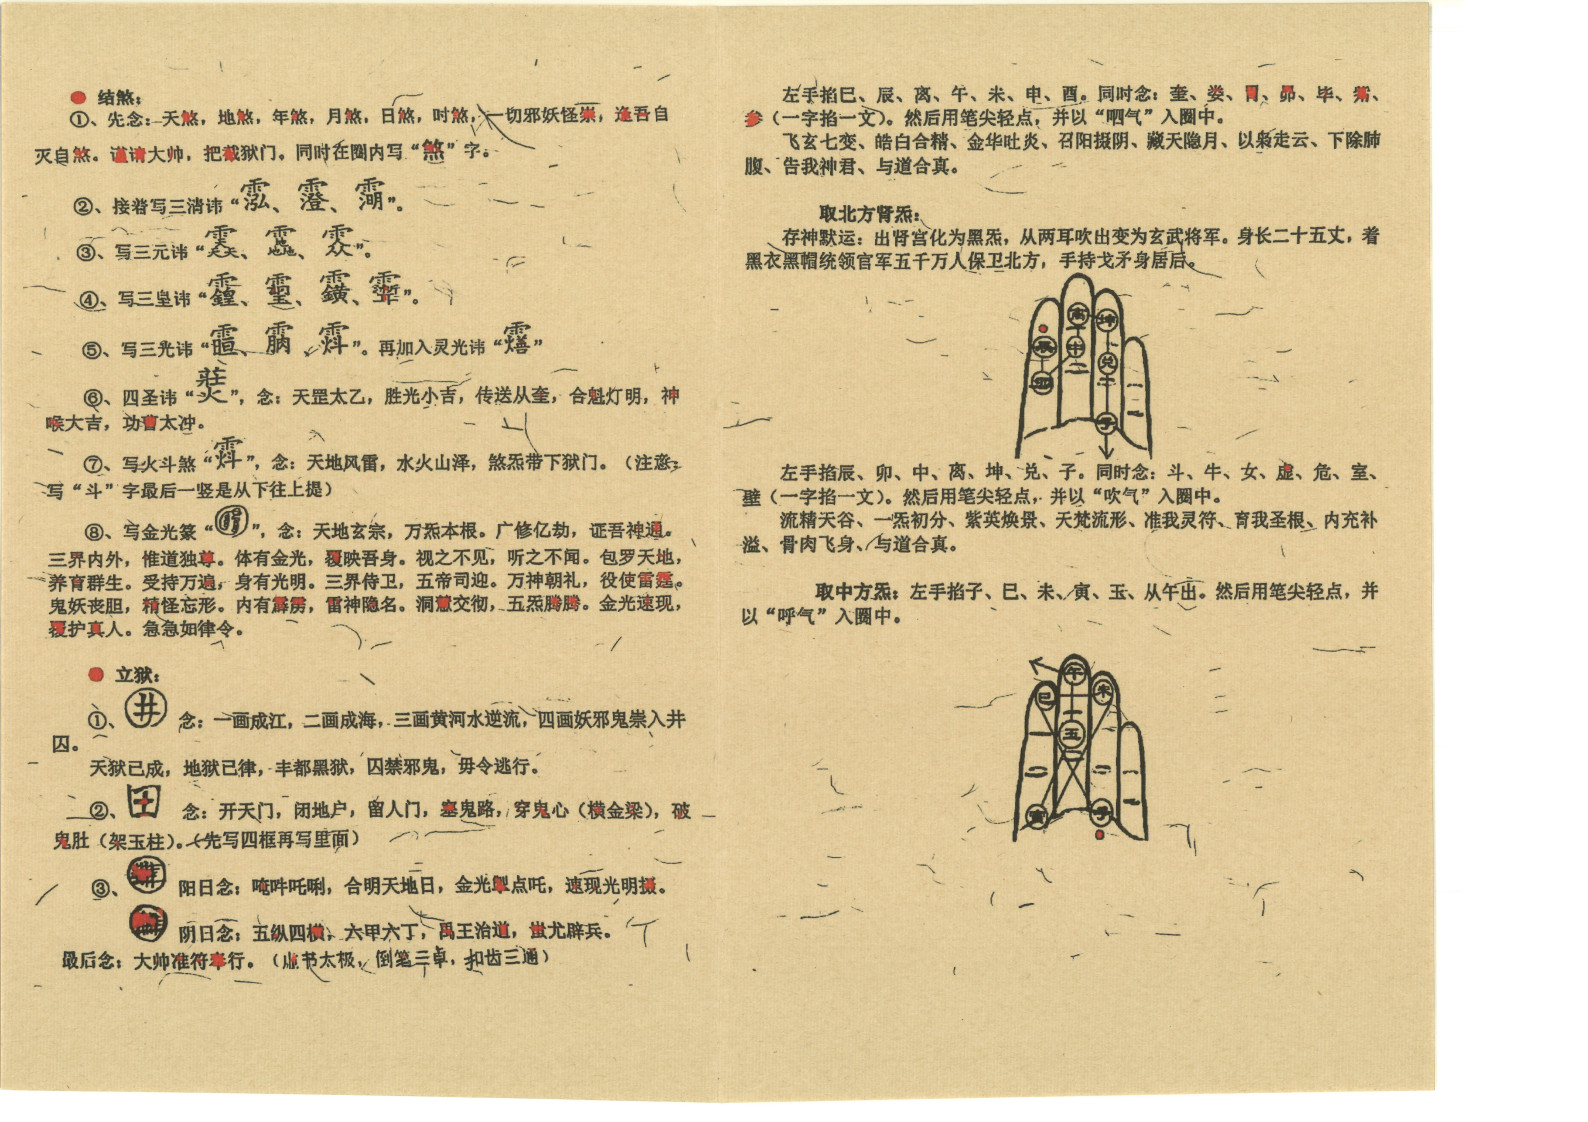 结煞：
①、先念：天煞，地煞，年煞，月煞，日煞，时煞，一切邪妖怪祟，逢吾自
灭自煞。谨请大帅，把截狱门。同时在圈内写“煞”字。
②、接着写三清讳“、、”。
③、写三元讳“、、”。
④、写三皇讳“、、、”。
⑤、写三光讳“、、”。再加入灵光讳“”
⑥、四圣讳“”，念：天罡太乙，胜光小吉，传送从奎，合魁灯明，神
喉大吉，功曹太冲。
⑦、写火斗煞“”，念：天地风雷，水火山泽，煞炁带下狱门。（注意：
写“斗”字最后一竖是从下往上提）
⑧、写金光篆“”，念：天地玄宗，万炁本根。广修亿劫，证吾神通。
三界内外，惟道独尊。体有金光，覆映吾身。视之不见，听之不闻。包罗天地，
养育群生。受持万遍，身有光明。三界侍卫，五帝司迎。万神朝礼，役使雷霆。
鬼妖丧胆，精怪忘形。内有霹雳，雷神隐名。洞慧交彻，五炁腾腾。金光速现，
覆护真人。急急如律令。
立狱：
①、井 念：一画成江，二画成海，三画黄河水逆流，四画妖邪鬼祟入井
囚。
天狱已成，地狱已律，丰都黑狱，囚禁邪鬼，毋令逃行。
②、 念：开天门，闭地户，留人门，塞鬼路，穿鬼心（横金梁），破
鬼肚（架玉柱）。（先写四框再写里面）
③、 阳日念：唵吽吒唎，合明天地日，金光点吒，速现光明摄。
阴日念：五纵四横，六甲六丁，禹王治道，蚩尤辟兵。
最后念：大帅准符奉行。（虚书太极，倒笔三卓，扣齿三通）
左手掐巳、辰、离、午、未、申、酉。同时念：奎、娄、胃、昴、毕、觜、
参（一字掐一文）。然后用笔尖轻点，并以“呬气”入圈中。
飞玄七变、皓白合精、金华吐炎、召阳摄阴、藏天隐月、以枭走云、下除肺
腹、告我神君、与道合真。
取北方肾炁：
存神默运：出肾宫化为黑炁，从两耳吹出变为玄武将军。身长二十五丈，着
黑衣黑帽统领官军五千万人保卫北方，手持戈矛身居后。
离 坤
辰 中 兑
卯 二 二 一
子
左手掐辰、卯、中、离、坤、兑、子。同时念：斗、牛、女、虚、危、室、
壁（一字掐一文）。然后用笔尖轻点，并以“吹气”入圈中。
流精天谷、一炁初分、紫英焕景、天梵流形、准我灵符、育我圣根、内充补
溢、骨肉飞身、与道合真。
取中方炁：左手掐子、巳、未、寅、玉、从午出。然后用笔尖轻点，并
以“呼气”入圈中。
午
巳 未
五
二 二 一
寅 子